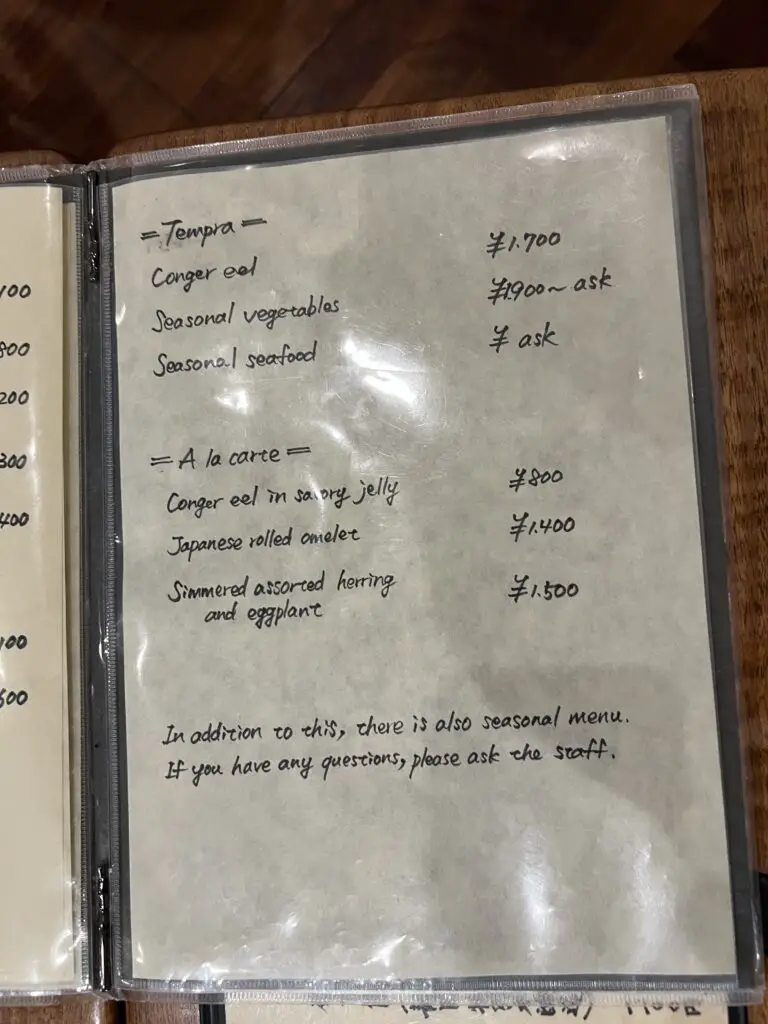 100
800
200
300
400
100
600
= Tempra =
Conger eel ¥1.700
Seasonal vegetables ¥1900~ ask
Seasonal seafood ¥ ask
= A la carte =
Conger eel in savory jelly ¥800
Japanese rolled omelet ¥1.400
Simmered assorted herring ¥1.500
and eggplant
In addition to this, there is also seasonal menu.
If you have any questions, please ask the staff.